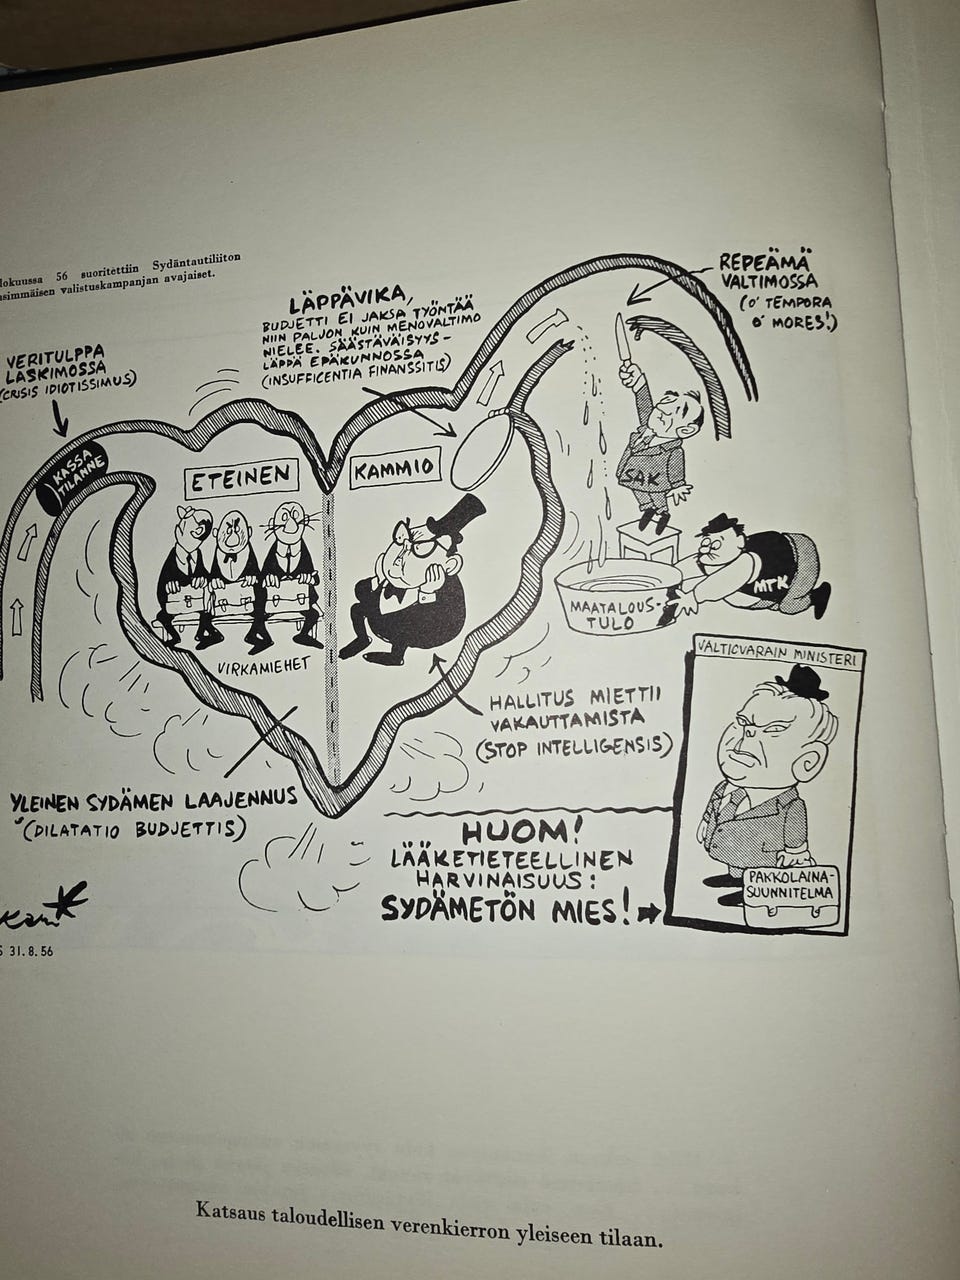 56 suoritettiin Sydäntautiliiton
valistuskampanjan avajaiset.
VERITULPPA
LASKIMOSSA
(CRISIS IDIOTISSIMUS)
LÄPPÄVIKA,
BUDJETTI EI JAKSA TYÖNTÄÄ
NIIN PALJON KUIN MENOVALTIMO
NIELEE. SÄÄSTÄVÄISYYS-
LÄPPÄ EPÄKUNNOSSA
(INSUFFICENTIA FINANSSITIS)
REPEÄMÄ
VALTIMOSSA
(O' TEMPORA
O' MORES!)
KASSA
TILANNE
ETEINEN
KAMMIO
SAK
MTK
MAATALOUS-
TULO
VIRKAMIEHET
HALLITUS MIETTII
VAKAUTTAMISTA
(STOP INTELLIGENSIS)
YLEINEN SYDÄMEN LAAJENNUS
(DILATATIO BUDJETTIS)
VALTIOVARAIN MINISTERI
PAKKOLAINA-
SUUNNITELMA
HUOM!
LÄÄKETIETEELLINEN
HARVINAISUUS:
SYDÄMETÖN MIES!
Kari
31.8.56
Katsaus taloudellisen verenkierron yleiseen tilaan.